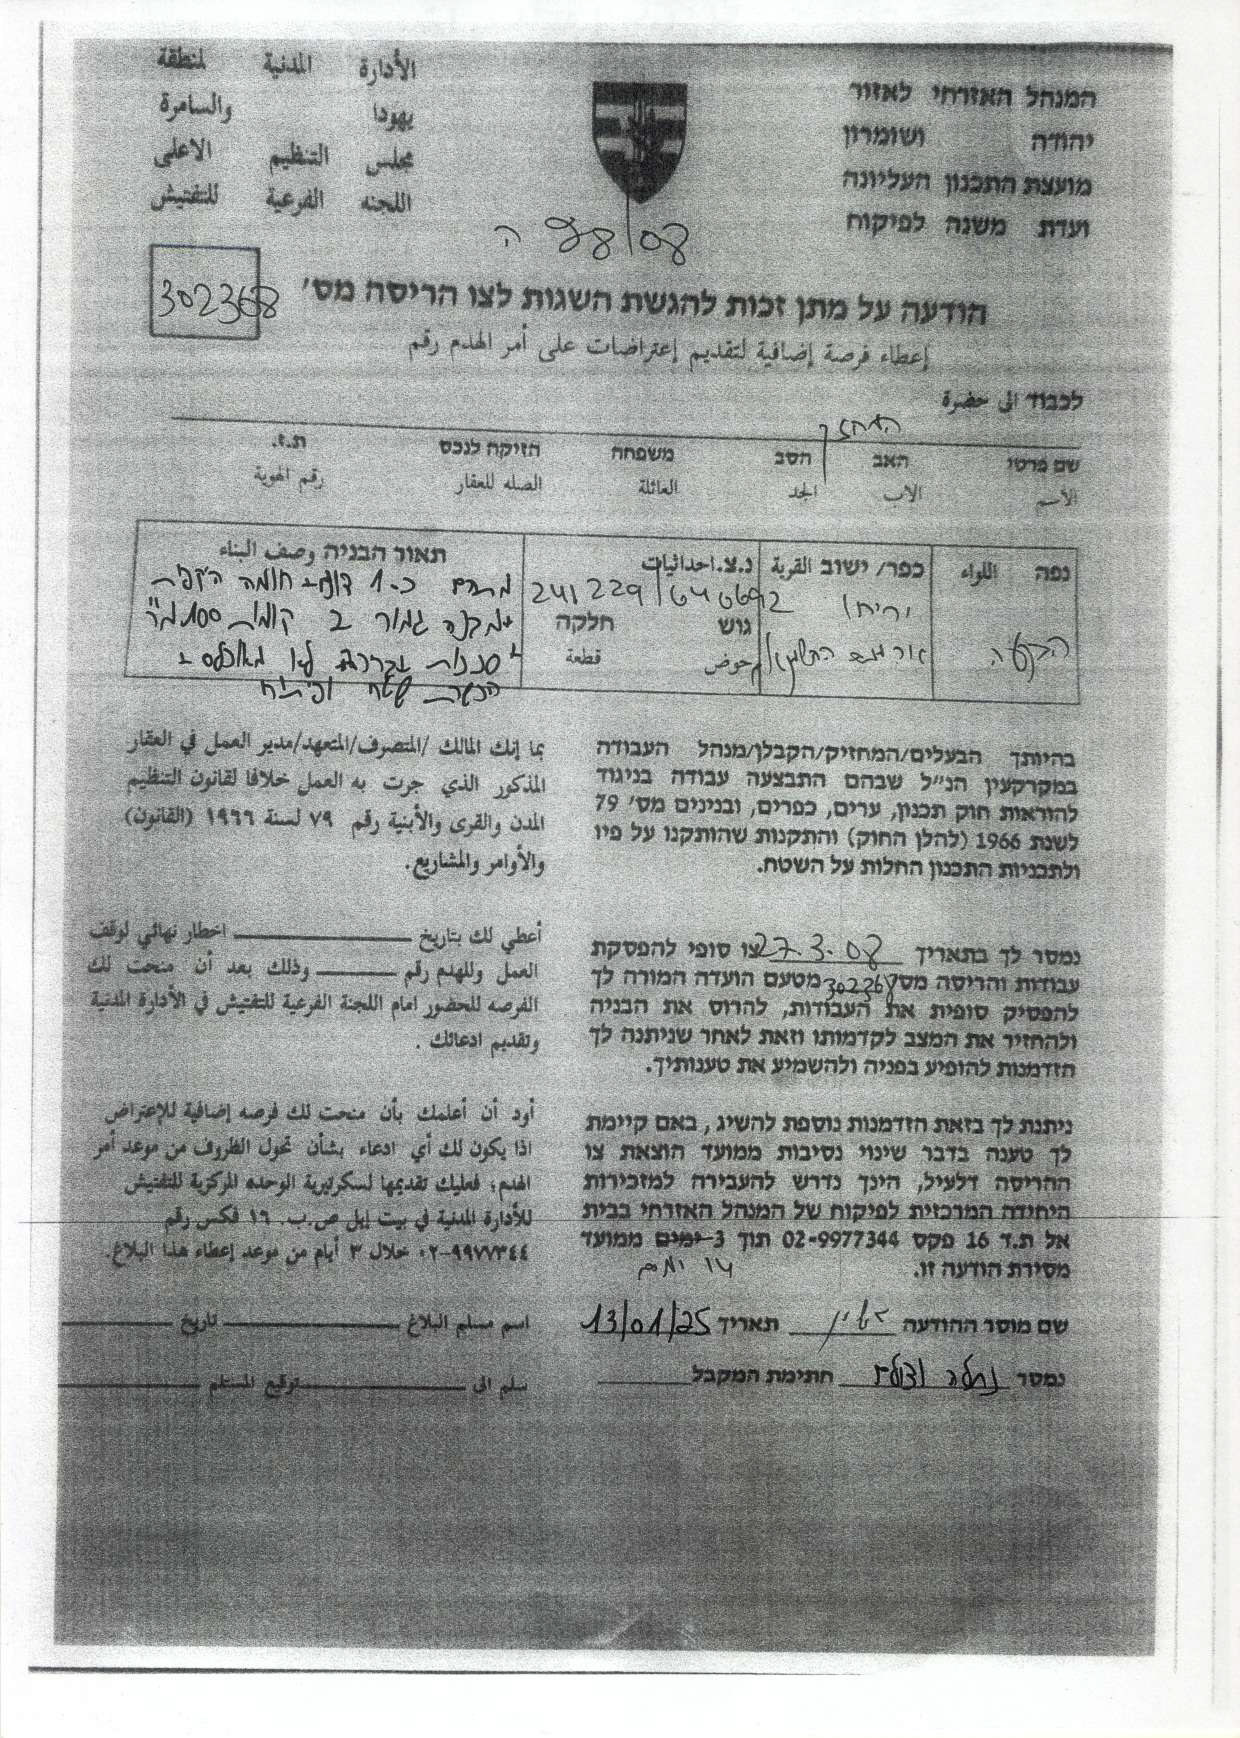 המנהל האזרחי לאזור
יהודה ושומרון
מועצת התכנון העליונה
ועדת משנה לפיקוח
الأدارة المدنية لمنطقة
يهودا والسامرة
مجلس التنظيم الاعلى
اللجنه الفرعية للتفتيش
ה 98/08
הודעה על מתן זכות להגשת השגות לצו הריסה מס׳ 302368
إعطاء فرصة إضافية لتقديم إعتراضات على أمر الهدم رقم
לכבוד الى حضرة
המחזיק
שם פרטי האב הסב משפחה הזיקה לנכס ת.ז.
الأسم الاب الجد العائلة الصله للعقار رقم الهوية
נפה اللواء כפר/ ישוב القرية נ.צ. احداثيات תאור הבניה وصف البناء
הבקעה
יריחו
241229/640692
גוש חלקה
حوض قطعة
מתחם כ-1 דונם חומה היקפית
מבנה גמור 2 קומות 100 מ"ר
לא מאוכלס
הכשרת שטח ופיתוח
בהיותך הבעלים/המחזיק/הקבלן/מנהל העבודה
במקרקעין הנ״ל שבהם התבצעה עבודה בניגוד
להוראות חוק תכנון, ערים, כפרים, ובנינים מס׳ 79
לשנת 1966 (להלן החוק) והתקנות שהותקנו על פיו
ולתכניות התכנון החלות על השטח.
بما إنك المالك /المتصرف/المتعهد/مدير العمل في العقار
المذكور الذي جرت به العمل خلافا لقانون التنظيم
المدن والقرى والأبنية رقم ٧٩ لسنة ١٩٦٦ (القانون)
والأوامر والمشاريع.
נמסר לך בתאריך 27.3.08 צו סופי להפסקת
עבודות והריסה מס׳ 302368 מטעם הועדה המורה לך
להפסיק סופית את העבודות, להרוס את הבניה
ולהחזיר את המצב לקדמותו וזאת לאחר שניתנה לך
הזדמנות להופיע בפניה ולהשמיע את טענותיך.
أعطي لك بتاريخ ــــــــ اخطار نهائي لوقف
العمل وللهدم رقم ــــــــ وذلك بعد أن منحت لك
الفرصه للحضور امام اللجنة الفرعية للتفتيش في الأدارة المدنية
وتقديم ادعائك .
ניתנת לך בזאת הזדמנות נוספת להשיג , באם קיימת
לך טענה בדבר שינוי נסיבות ממועד הוצאת צו
ההריסה דלעיל, הינך נדרש להעבירה למזכירות
היחידה המרכזית לפיקוח של המנהל האזרחי בבית
אל ת.ד 16 פקס 02-9977344 תוך 3 ימים ממועד
מסירת הודעה זו. 14 ימים
أود أن أعلمك بأن منحت لك فرصه إضافية للإعتراض
اذا يكون لك أي ادعاء بشأن تحول الظروف من موعد أمر
الهدم؛ فعليك تقديمها لسكرتيرية الوحده المركزية للتفتيش
للأدارة المدنية في بيت إيل ص.ب. ١٦ فكس رقم
٠٢-٩٩٧٧٣٤٤ خلال ٣ أيام من موعد إعطاء هذا البلاغ.
שם מוסר ההודעה תאריך 13/01/25
اسم مسلم البلاغ ــــــــ تاريخ ــــــــ
נמסר חתימת המקבל
سلم الى ــــــــ توقيع المستلم ــــــــ